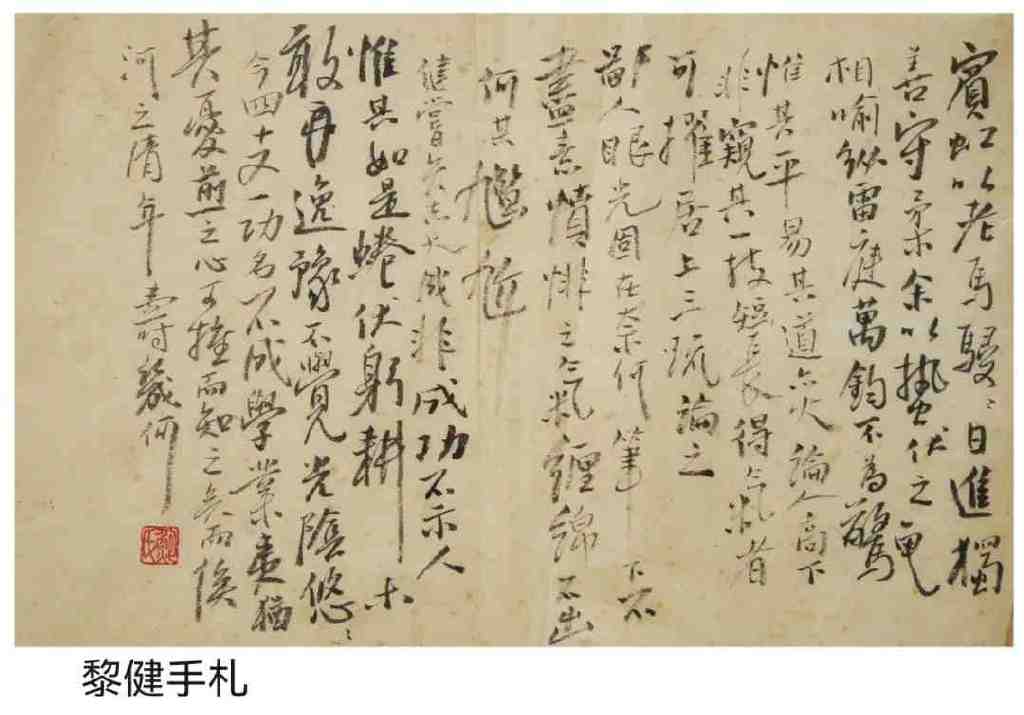 賓虹以老馬駸駸日進獨
善守柔余以蟄伏之龜
相喻縱雷庭萬鈞不為驚
惟其平易其道亦火論人高下
非窺其一技短長得之氣者
可擢居上三流論之
鄙人眼光固在奈何筆下不
盡意憤悱之氣纏綿不出
何其尷尬
健嘗矢志大成非成功不示人
惟其如是蜷伏躬耕未
敢再逸豫不覺光陰悠悠
今四十又一功名不成學業夷猶
其憂煎之心可推而知之矣而俟
河之清年壽幾何
黎健手札